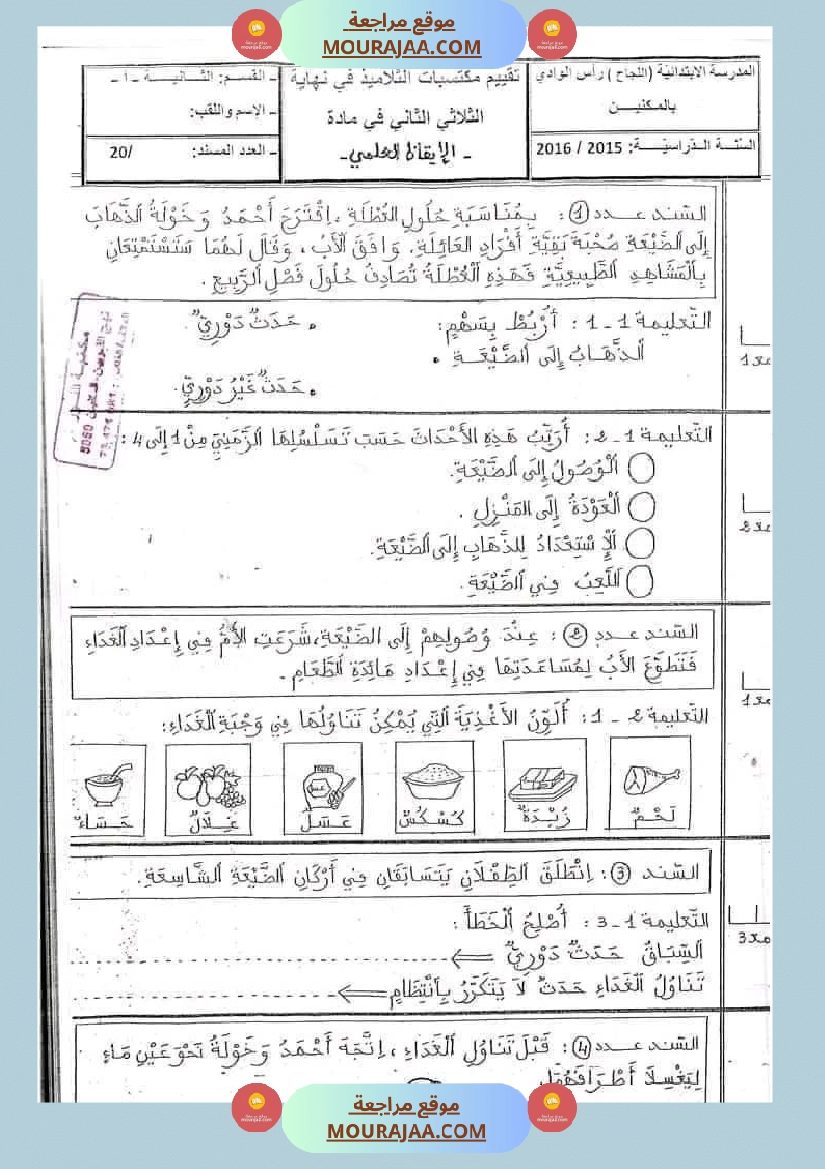 موقع مراجعة
MOURAJAA.COM
المدرسة الابتدائية (النجاح) رأس الوادي
بالمكنين
السنة الدراسية: 2015 / 2016
تقييم مكتسبات التلاميذ في نهاية
الثلاثي الثاني في مادة
- الإيقاظ العلمي -
- القسم: الثانية - أ -
- الإسم واللقب:
- العدد المسند: /20
السّند عدد 1: بِمُنَاسَبَةِ حُلُولِ العُطْلَةِ، اِقْتَرَحَ أَحْمَدُ وَخَوْلَةُ الذَّهَابَ
إِلَى الضَّيْعَةِ صُحْبَةَ بَقِيَّةِ أَفْرَادِ العَائِلَةِ. وَافَقَ الأَبُ، وَقَالَ لَهُمَا سَتَسْتَمْتِعَانِ
بِالْمَشَاهِدِ الطَّبِيعِيَّةِ فَهَذِهِ الْعُطْلَةُ تُصَادِفُ حُلُولَ فَصْلِ الرَّبِيعِ.
التّعليمة 1-1: أَرْبُطُ بِسَهْمٍ:
• حَدَثٌ دَوْرِيٌّ.
الذَّهَابُ إِلَى الضَّيْعَةِ •
• حَدَثٌ غَيْرُ دَوْرِيٍّ.
مع1
التّعليمة 1-2: أُرَتِّبُ هَذِهِ الأَحْدَاثَ حَسَبَ تَسَلْسُلِهَا الزَّمَنِيِّ مِنْ 1 إِلَى 4:
الْوُصُولُ إِلَى الضَّيْعَةِ.
الْعَوْدَةُ إِلَى المَنْزِلِ.
الْإِسْتِعْدَادُ لِلذَّهَابِ إِلَى الضَّيْعَةِ.
اللَّعِبُ فِي الضَّيْعَةِ.
مع2
السّند عدد 2: عِنْدَ وُصُولِهِمْ إِلَى الضَّيْعَةِ، شَرَعَتِ الأُمُّ فِي إِعْدَادِ الْغَدَاءِ
فَتَطَوَّعَ الأَبُ لِمُسَاعَدَتِهَا فِي إِعْدَادِ مَائِدَةِ الطَّعَامِ.
مع1
التّعليمة 2-1: أُلَوِّنُ الأَغْذِيَةَ الَّتِي يُمْكِنُ تَنَاوُلُهَا فِي وَجْبَةِ الْغَدَاءِ:
لَحْمٌ زُبْدَةٌ كُسْكُسٌ عَسَلٌ غِلَالٌ حَسَاءٌ
السّند 3: اِنْطَلَقَ الطِّفْلَانِ يَتَسَابَقَانِ فِي أَرْكَانِ الضَّيْعَةِ الشَّاسِعَةِ.
التّعليمة 3-1: أُصْلِحُ الْخَطَأَ:
مع3
السِّبَاقُ حَدَثٌ دَوْرِيٌّ
تَنَاوُلُ الْغَدَاءِ حَدَثٌ لَا يَتَكَرَّرُ بِانْتِظَامٍ
السّند عدد 4: قَبْلَ تَنَاوُلِ الْغَدَاءِ، اِتَّجَهَ أَحْمَدُ وَخَوْلَةُ نَحْوَ عَيْنِ مَاءٍ
لِيَغْسِلَا أَطْرَافَهُمَا
موقع مراجعة
MOURAJAA.COM